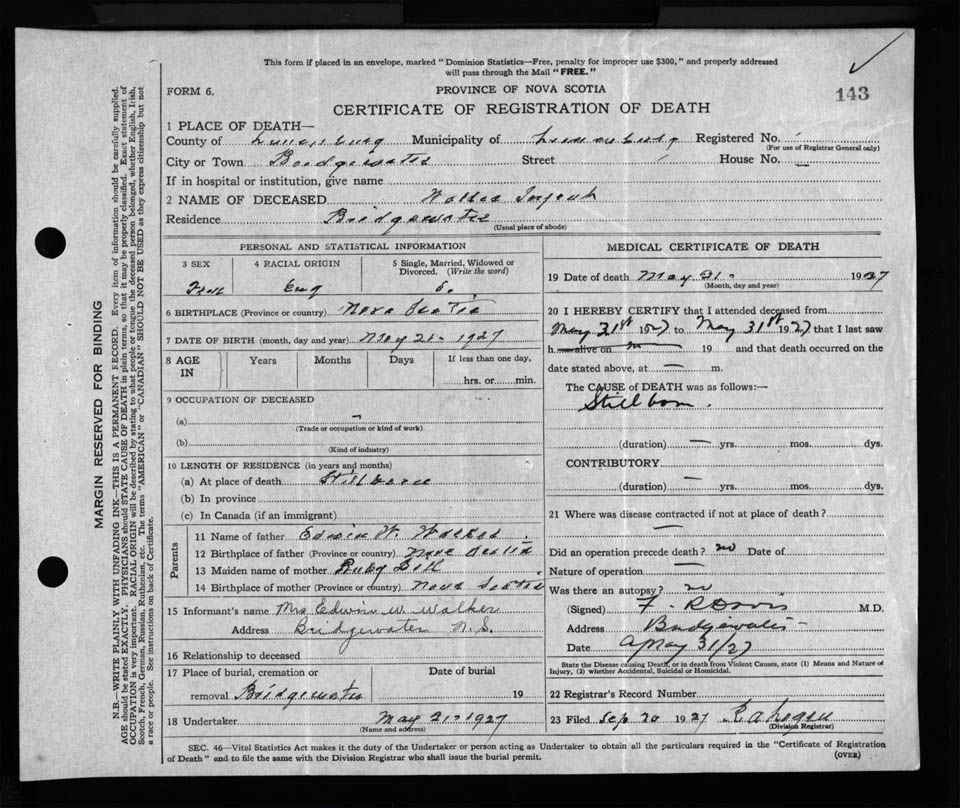 This form if placed in an envelope, marked "Dominion Statistics—Free, penalty for improper use $300," and properly addressed
will pass through the Mail "FREE."
FORM 6.
PROVINCE OF NOVA SCOTIA
143
CERTIFICATE OF REGISTRATION OF DEATH
1 PLACE OF DEATH—
County of Lunenburg Municipality of Lunenburg Registered No.
(For use of Registrar General only)
City or Town Bridgewater Street House No. —
If in hospital or institution, give name
2 NAME OF DECEASED Walker Infant
Residence Bridgewater
(Usual place of abode)
PERSONAL AND STATISTICAL INFORMATION
3 SEX 4 RACIAL ORIGIN 5 Single, Married, Widowed or Divorced. (Write the word)
Eng S.
6 BIRTHPLACE (Province or country) Nova Scotia
7 DATE OF BIRTH (month, day and year) May 21- 1927
8 AGE IN Years Months Days If less than one day,
hrs. or min.
9 OCCUPATION OF DECEASED
(a) –
(Trade or occupation or kind of work)
(b)
(Kind of industry)
10 LENGTH OF RESIDENCE (in years and months)
(a) At place of death Stillborn
(b) In province
(c) In Canada (if an immigrant)
Parents
11 Name of father Edwin W. Walker
12 Birthplace of father (Province or country) Nova Scotia
13 Maiden name of mother Ruby
14 Birthplace of mother (Province or Country) Nova Scotia
15 Informant's name Mrs Edwin W. Walker
Address Bridgewater N.S.
16 Relationship to deceased
17 Place of burial, cremation or removal Bridgewater Date of burial 19
18 Undertaker May 21- 1927
(Name and address)
MEDICAL CERTIFICATE OF DEATH
19 Date of death May 31- 1927
(Month, day and year)
20 I HEREBY CERTIFY that I attended deceased from
May 31st 1927 to May 31st 1927 that I last saw
h alive on 19 and that death occurred on the
date stated above, at — m.
The CAUSE of DEATH was as follows:—
Stillborn.
(duration) — yrs. mos. dys.
CONTRIBUTORY
(duration) — yrs. mos. dys.
21 Where was disease contracted if not at place of death?
—
Did an operation precede death? no Date of
Nature of operation —
Was there an autopsy? no
(Signed) F. R Davis M.D.
Address Bridgewater
Date May 31/27
State the Disease causing Death, or in death from Violent Causes, state (1) Means and Nature of
Injury, (2) whether Accidental, Suicidal or Homicidal.
22 Registrar's Record Number
23 Filed Sep 20 1927
(Division Registrar)
SEC. 46—Vital Statistics Act makes it the duty of the Undertaker or person acting as Undertaker to obtain all the particulars required in the "Certificate of Registration
of Death" and to file the same with the Division Registrar who shall issue the burial permit.
(OVER)
MARGIN RESERVED FOR BINDING
N.B.—WRITE PLAINLY WITH UNFADING INK—THIS IS A PERMANENT RECORD. Every item of information should be carefully supplied.
AGE should be stated EXACTLY. PHYSICIANS should STATE CAUSE OF DEATH in plain terms, so that it may be properly classified. Exact statement of
OCCUPATION is very important. RACIAL ORIGIN will be described by stating to what people or tongue the deceased person belonged, whether English, Irish,
Scotch, French, German, Russian, Ruthenian, etc. The terms "AMERICAN" or "CANADIAN" SHOULD NOT BE USED as they express citizenship but not
a race or people. See instructions on back of Certificate.